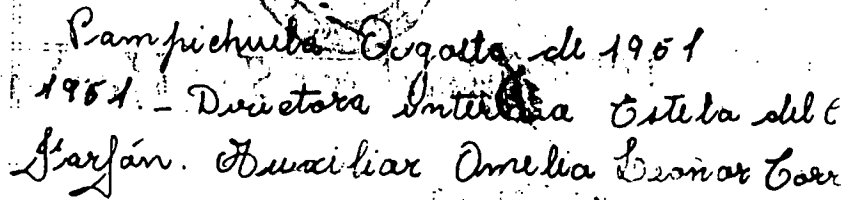 Pampichuela Agosto de 1951
1951.- Directora interina Estela del C
Farfán. Auxiliar Amelia Leonor Torr